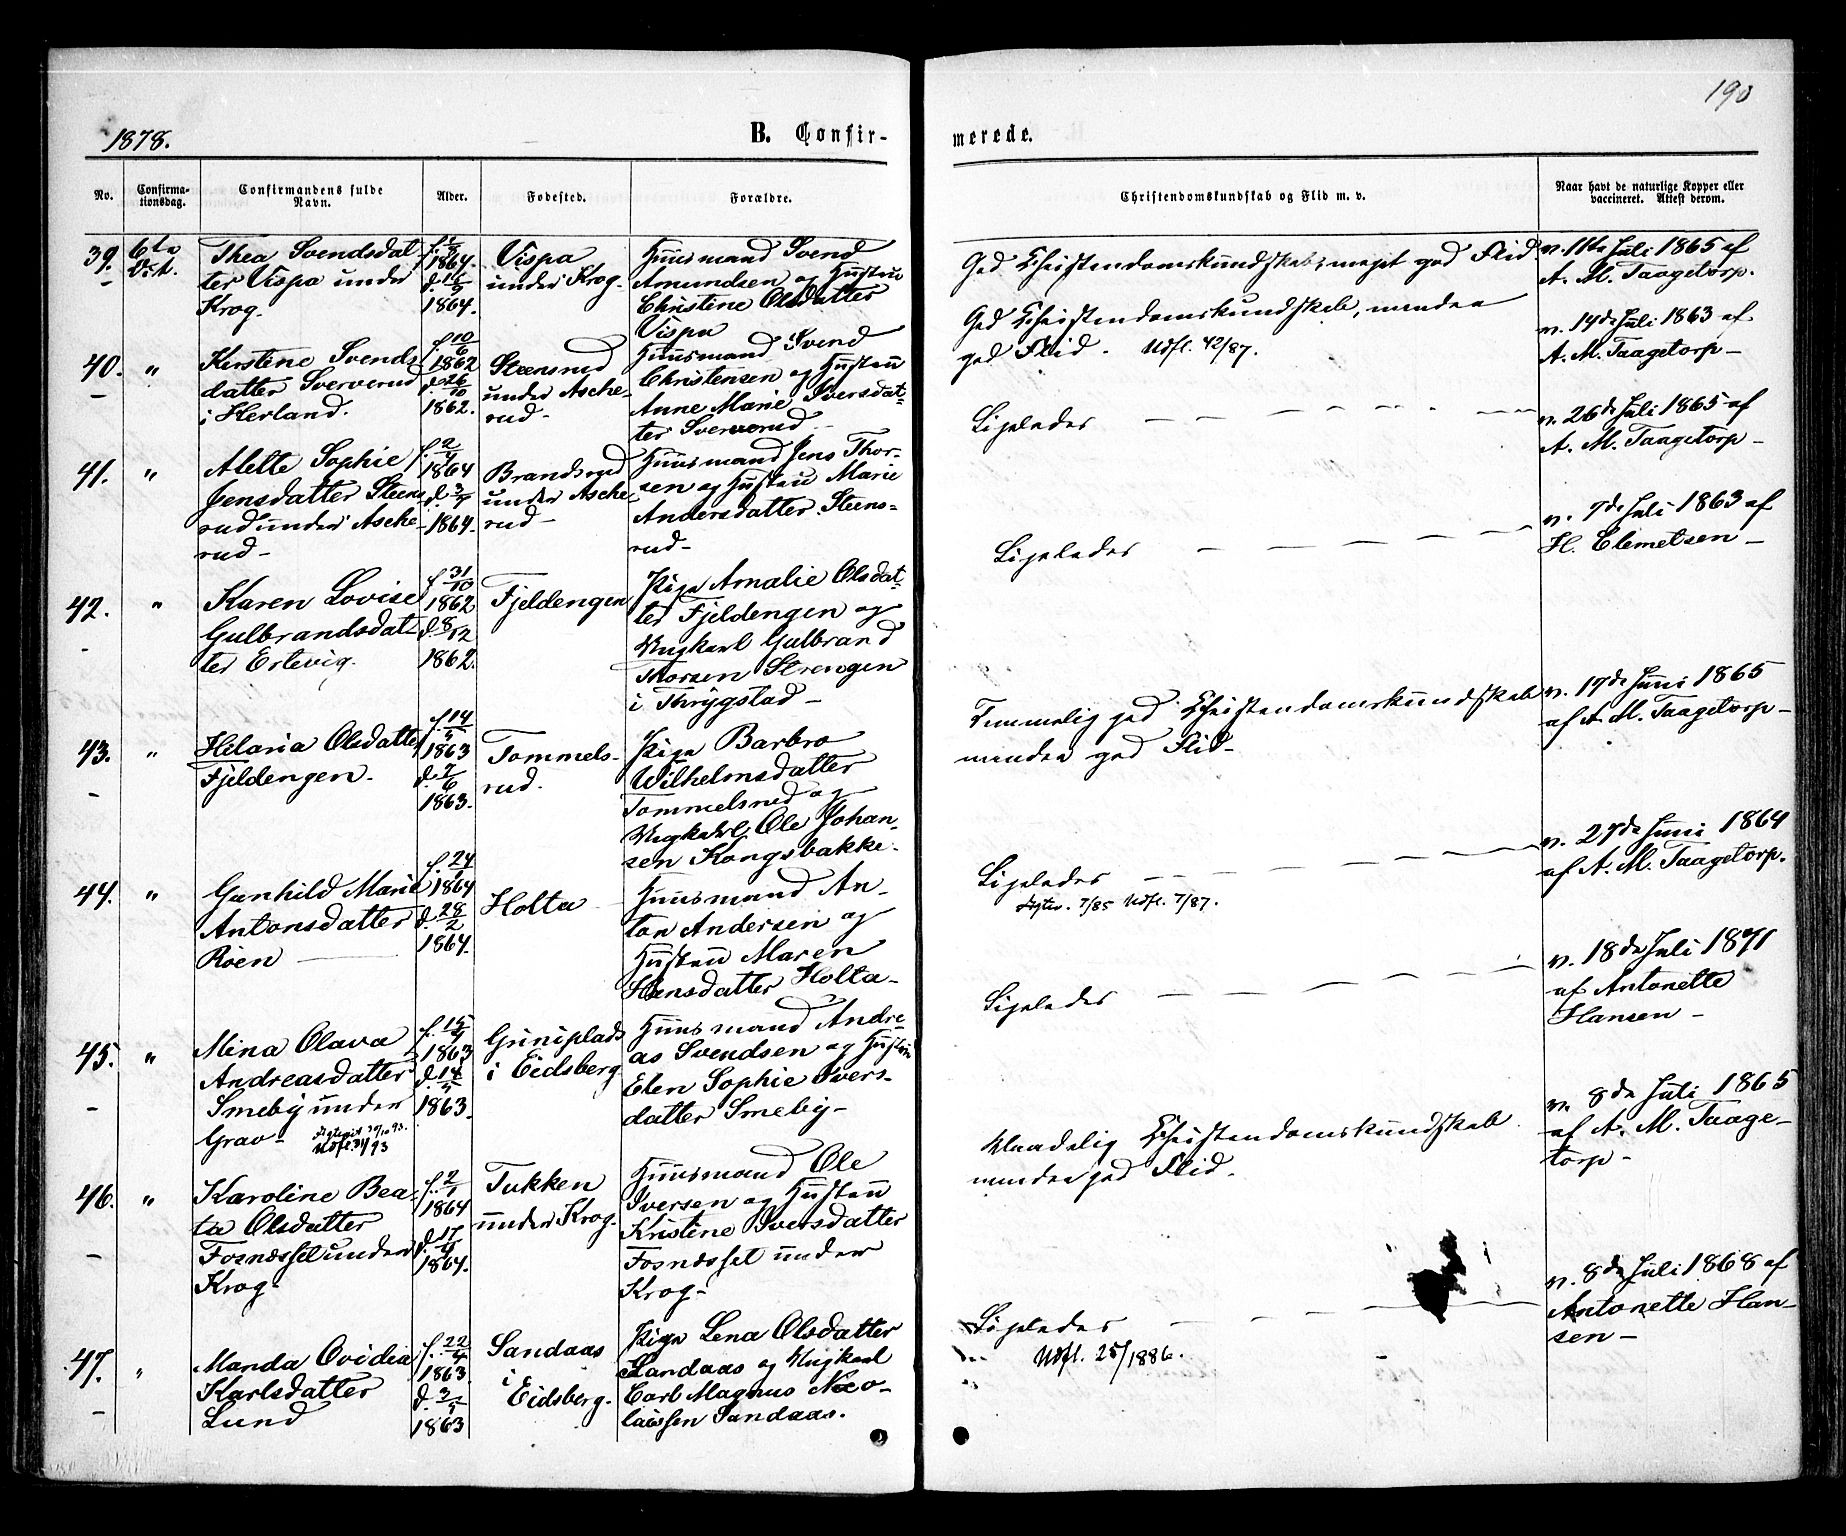 190
1878.
B. Confir-
merede.
No.
Confirma-
tionsdag.
Confirmandens fulde
Navn.
Alder.
Fødested.
Forældre.
Christendomskundskab og Flid m. v.
Naar havt de naturlige Kopper eller
vaccineret. Attest derom.
39.
6te
Thea Svendsdat
ter Vispa under
Krog.
1864
1864.
Vispa
under Krog.
Huusmand Svend
Amundsen og Hustru
Christine Olsdatter
Vispa
God Christendomskundskab, meget god Flid
v. 11te Juli 1865 af
A. M. Taagetorp.
40.
"
Kirstene Svends
datter Sververud
i Herland.
f. 10/6
1862
d. 26/10
1862.
Steensrud
under Asche-
rud-
Huusmand Svend
Christensen og Hustru
Anne Marie Iversdat-
ter Sververud -
God Christendomskundskab, mindre
god Flid. Udfl. 42/87.
v. 14de Juli 1863 af
A. M. Taagetorp-
41.
"
Alette Sophie
Jensdatter Steens
rud under Asche-
rud-
f. 2/4
1864
1864.
Brandsrud
under Asche-
rud-
Huusmand Jens Thor-
sen og Hustru Marie
Andersdatter Steens-
rud-
Ligeledes
v. 26de Juli 1865 af
A. M. Taagetorp-
42.
"
Karen Lovise
Gulbrandsdat
ter Ertevig.
f. 31/10
1862
d. 8/12
1862.
Fjeldengen
Pige Amalie Olsdat-
ter Fjeldengen og
Ungkarl Gulbrand
Thorsen Strengen
i Thrygstad-
Ligeledes
v. 7de Juli 1863 af
H. Clemetsen-
43.
"
Hilaria Olsdatter
Fjeldengen-
f. 14/5
1863
d. 7/6
1863.
Tommels-
rud.
Pige Barbro
Wilhelmsdatter
Tommelsrud og
Ungkarl Ole Johan-
sen Kongsbakke-
Temmelig god Christendomskundskab
mindre god Flid-
v. 17de Juni 1865
af A. M. Taagetorp-
44.
"
Gunhild Marie
Antonsdatter
Röen
f. 24/1
1864
d. 28/2
1864.
Holta
Huusmand An-
ton Andersen og
Hustru Maren
Hansdatter Holta-
Ligeledes
7/85 Udfl. 7/87.
v. 27de Juni 1864
af A. M. Taagetorp.
45.
"
Mina Olava
Andreasdatter
Smeby under
Grav-
1863
1863.
Griniplads
i Eidsberg
Huusmand Andre-
as Svendsen og Hustru
Elen Sophie Ivers-
datter Smeby-
Ligeledes
v. 18de Juli 1871
af Antonette
Hansen-
46.
"
Karoline Bea-
ta Olsdatter
Fosnæsset under
Krog-
f. 2/1
1864
d. 17/4
1864.
Tukken
under Krog.
Huusmand Ole
Iversen og Hustru
Kristine Iversdatter
Fosnæsset under
Krog-
Maadelig Christendomskundskab
mindre god Flid.
v. 8de Juli 1865
af A. M. Taage-
torp-
47.
"
Manda Ovidia
Karlsdatter
Lund
f. 22/4
1863
d. 3/5
1863
Sandaas
i
Eidsberg.
Pige Lena Olsdatter
Sandaas og Ungkarl
Carl Magnus Nico-
laissen Sandaas.
Ligeledes
Udfl. 25/1886.
v. 8de Juli 1868 af
Antonette Han-
sen-